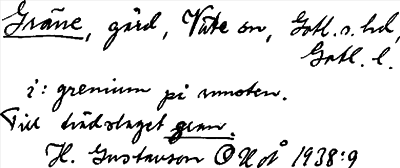 Gräne, gård, Väte sn, Gotl. s. hd,
Gotl. l.
i: grenium på runsten.
Till trädslaget gran.
H. Gustavson OHÅ 1938:9